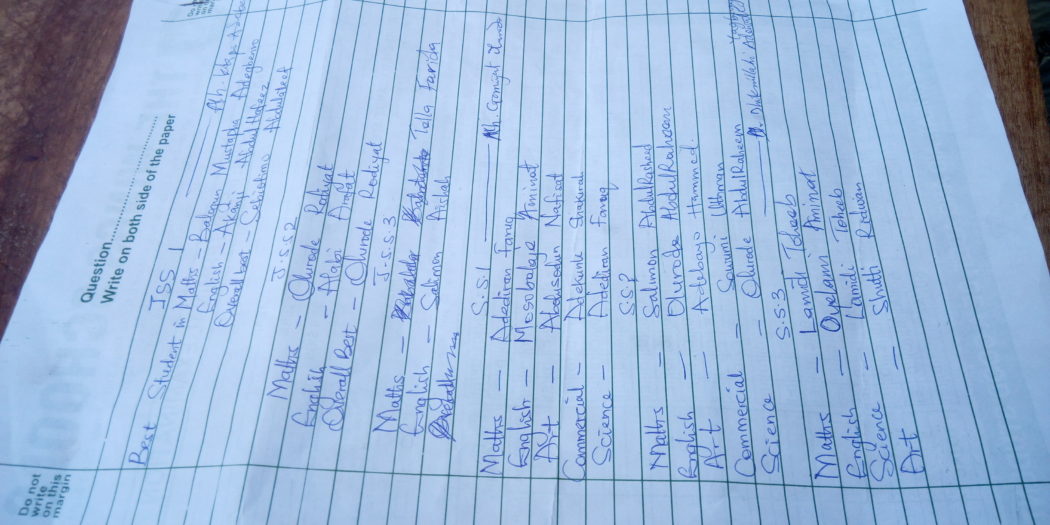 Question
Write on both side of the paper
Do not
write
on this
margin
JSS 1
Best Student in Maths - Mustapha
English - Akanji Abdul Hafeez
Overall best - Abdullateef
J.S.S 2
Maths - Olurode Rodiyat
English - Alabi Arafat
Overall Best - Olurode Rodiyat
J.S.S.3
Maths - Tella Farida
English - Salmon Aishah
S.S.1
Maths - Adediran Faruq
English - Mosobalaje Aminat
Art - Abdusalam Nafisat
Commercial - Adekunle Shukurah
Science - Adediran Faruq
SS2
Maths - Salmon AbdulRasheed
English - Olurode AbdulRaheem
Art - Adebayo Hammed
Commercial - Sanumi Uthman
Science - Olurode AbdulRaheem
S.S.3
Maths - Lamidi Toheeb
English - Oyelami Aminat
Science - Lamidi Toheeb
Art - Shittu Ridwan